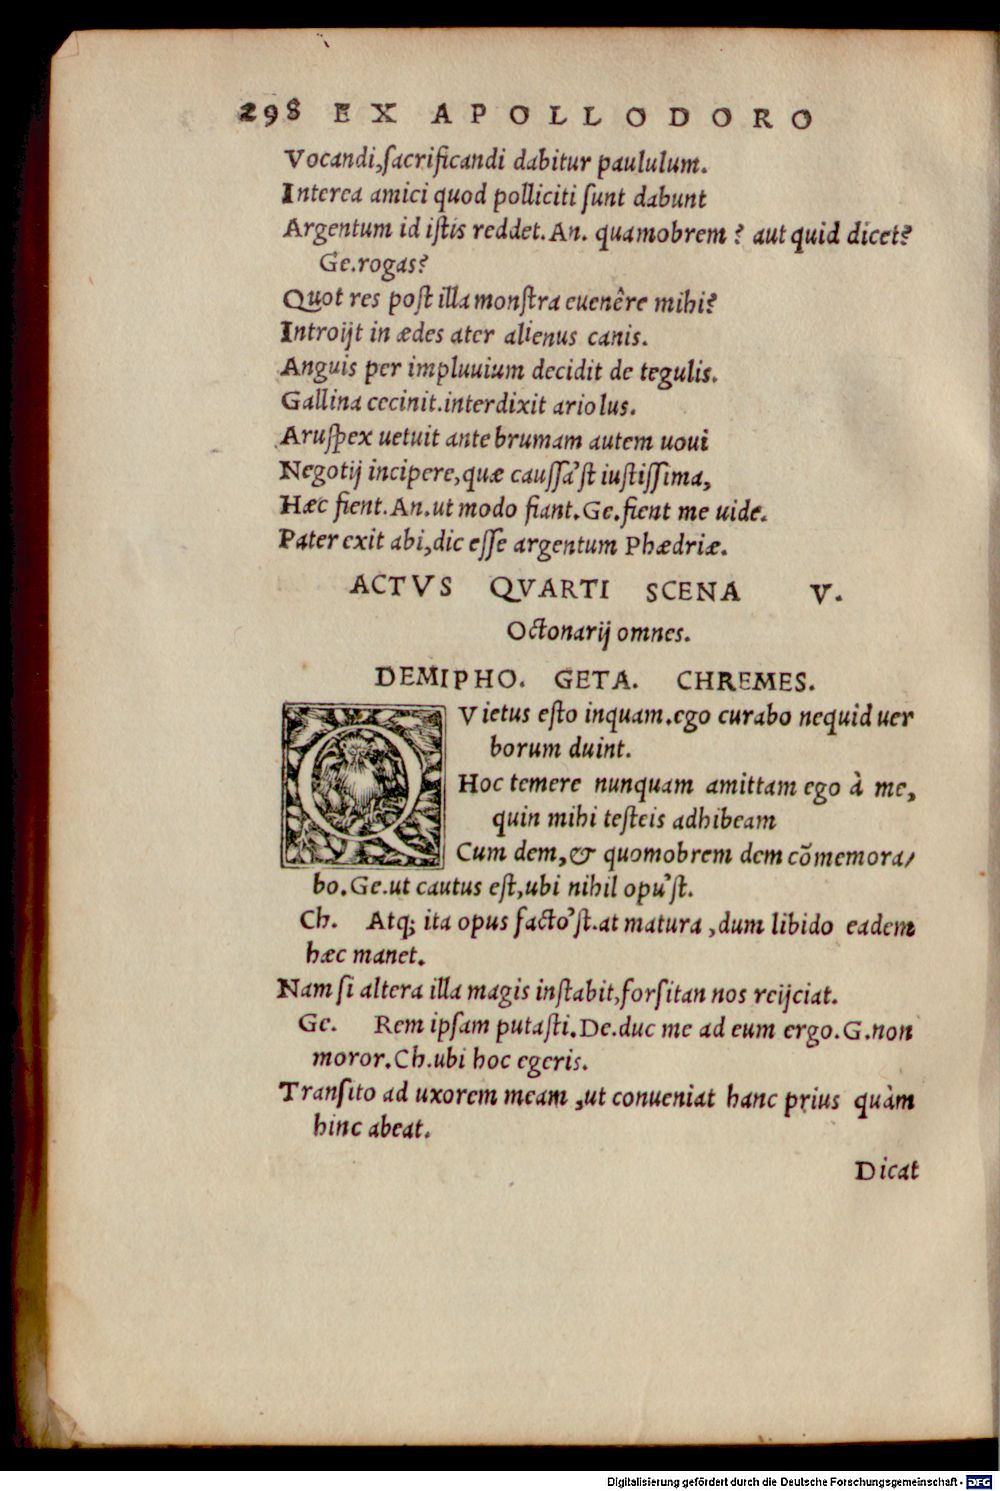 298 EX APOLLODORO
Vocandi,ſacrificandi dabitur paululum.
Interea amici quod polliciti ſunt dabunt
Argentum id iſtis reddet. An. quamobrem ? aut quid dicet?
Ge.rogas?
Quot res poſt illa monſtra euenêre mihi?
Introijt in ædes ater alienus canis.
Anguis per impluuium decidit de tegulis.
Gallina cecinit.interdixit ariolus.
Aruſpex uetuit ante brumam autem uoui
Negotij incipere,quæ cauſſa'ſt iuſtiſſima,
Hæc fient.An.ut modo fiant.Ge.fient me uide.
Pater exit abi,dic eſſe argentum Phædriæ.
ACTVS QVARTI SCENA V.
Octonarij omnes.
DEMIPHO. GETA. CHREMES.
QVietus eſto inquam.ego curabo nequid uer
borum duint.
Hoc temere nunquam amittam ego à me,
quin mihi teſteis adhibeam
Cum dem,& quomobrem dem cõmemora/
bo.Ge.ut cautus eſt,ubi nihil opu'ſt.
Ch. Atq; ita opus facto'ſt.at matura ,dum libido eadem
hæc manet.
Nam ſi altera illa magis inſtabit,forſitan nos reijciat.
Ge. Rem ipſam putaſti.De.duc me ad eum ergo.G.non
moror.Ch.ubi hoc egeris.
Tranſito ad uxorem meam ,ut conueniat hanc prius quàm
hinc abeat.
Dicat
Digitalisierung gefördert durch die Deutsche Forschungsgemeinschaft - DFG